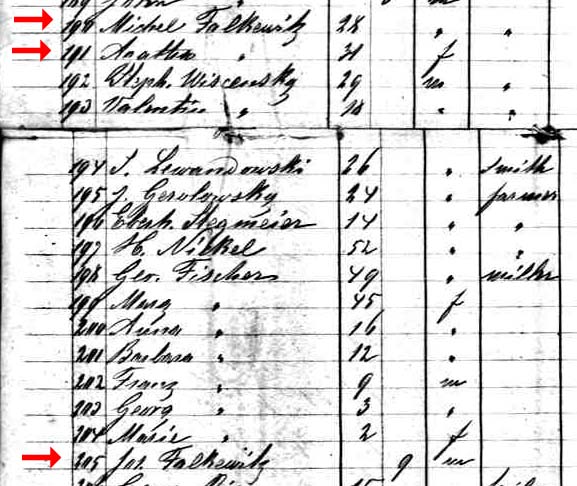 189 John " m
190 Michel Falkewitz 28 " "
191 Agatha " 31 f
192 Steph. Wiscensky 29 m "
193 Valentin " 24 " "
194 S. Lewandowski 26 " smith
195 J. Gerolowsky 24 " farmer
196 Eberh. Stegmeier 14 " "
197 H. Nilkel 52 " "
198 Geo. Fischer 49 " miller
199 Marg " 45 f
200 Anna " 16 "
201 Barbara " 12 "
202 Franz " 9 m
203 Georg " 3 "
204 Marie " 2 f
205 Jos. Falkewitz 9 m